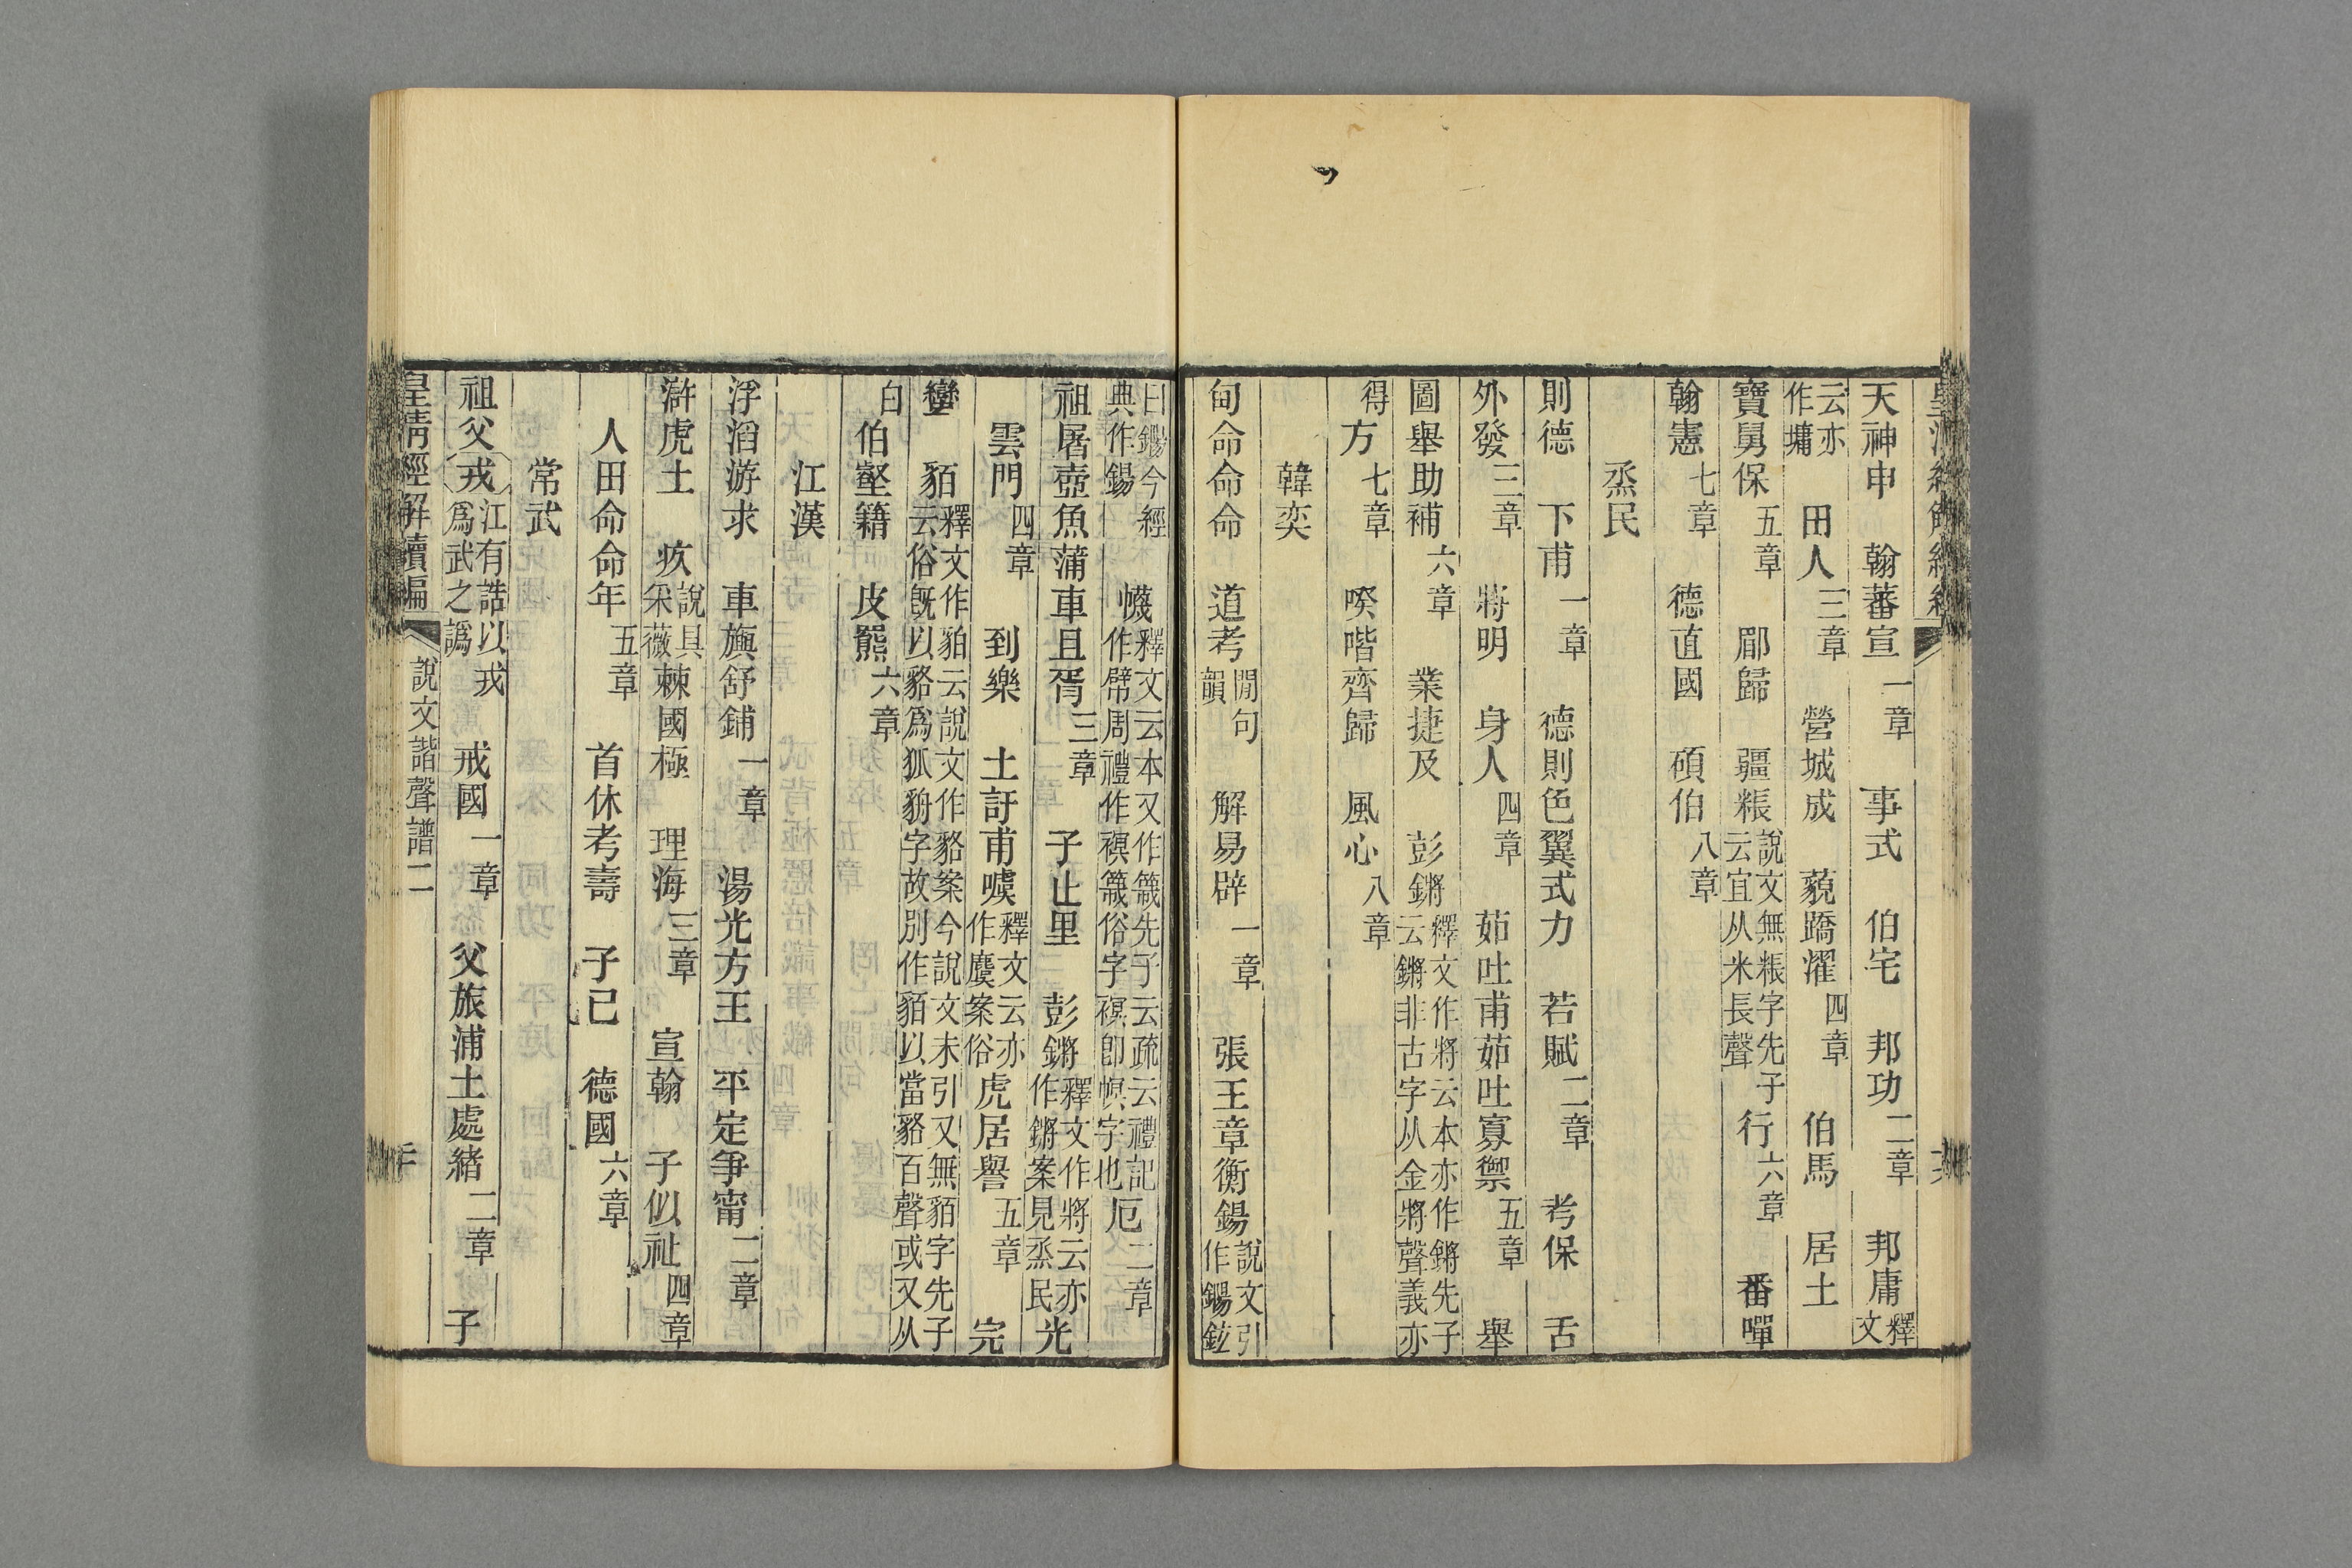 天神申　翰蕃宣一章　事式　伯宅　邦功二章　邦庸釋文
云亦作墉　田人三章　營城成　藐蹻濯四章　伯馬　居土
寶舅保五章　郿歸　疆粻說文無粻字先子云宜从米長聲行六章　番嘽
翰憲七章　德直國　碩伯八章
烝民
則德　下甫一章　德則色翼式力　若賦二章　考保　舌
外發三章　將明　身人四章　茹吐甫茹吐寡禦五章　舉
圖舉助補六章　業捷及　彭鏘釋文作將云本亦作鏘先子云鏘非古字从金將聲義亦
得方七章　騤喈齊歸　風心八章
韓奕
甸命命命　道考閒句韻　解易辟一章　張王章衡鍚說文引作鐊鉉
曰鐊今經典作鍚　幭釋文云本又作簚先子云疏云禮記作幦周禮作䙩簚俗字䙩卽幎字也厄二章
祖屠壺魚蒲車且胥三章　子止里　彭鏘釋文作將云亦作鏘案見烝民光
雲門四章　到樂　土訏甫噳釋文云亦作麌案俗虎居譽五章　完
蠻　貊釋文作貊云說文作貉案今說文未引又無貊字先子云俗旣以貉爲狐貈字故別作貊以當貉百聲或又从
白伯壑籍　皮羆六章
江漢
浮滔游求　車旟舒鋪一章　湯光方王　平定爭甯二章
滸虎土　疚說具采薇棘國極　理海三章　宣翰　子似祉四章
人田命命年五章　首休考壽　子已　德國六章
常武
祖父戎江有誥以戎爲武之譌　戒國一章　父旅浦土處緒二章　子
皇清經解續編　說文諧聲譜二